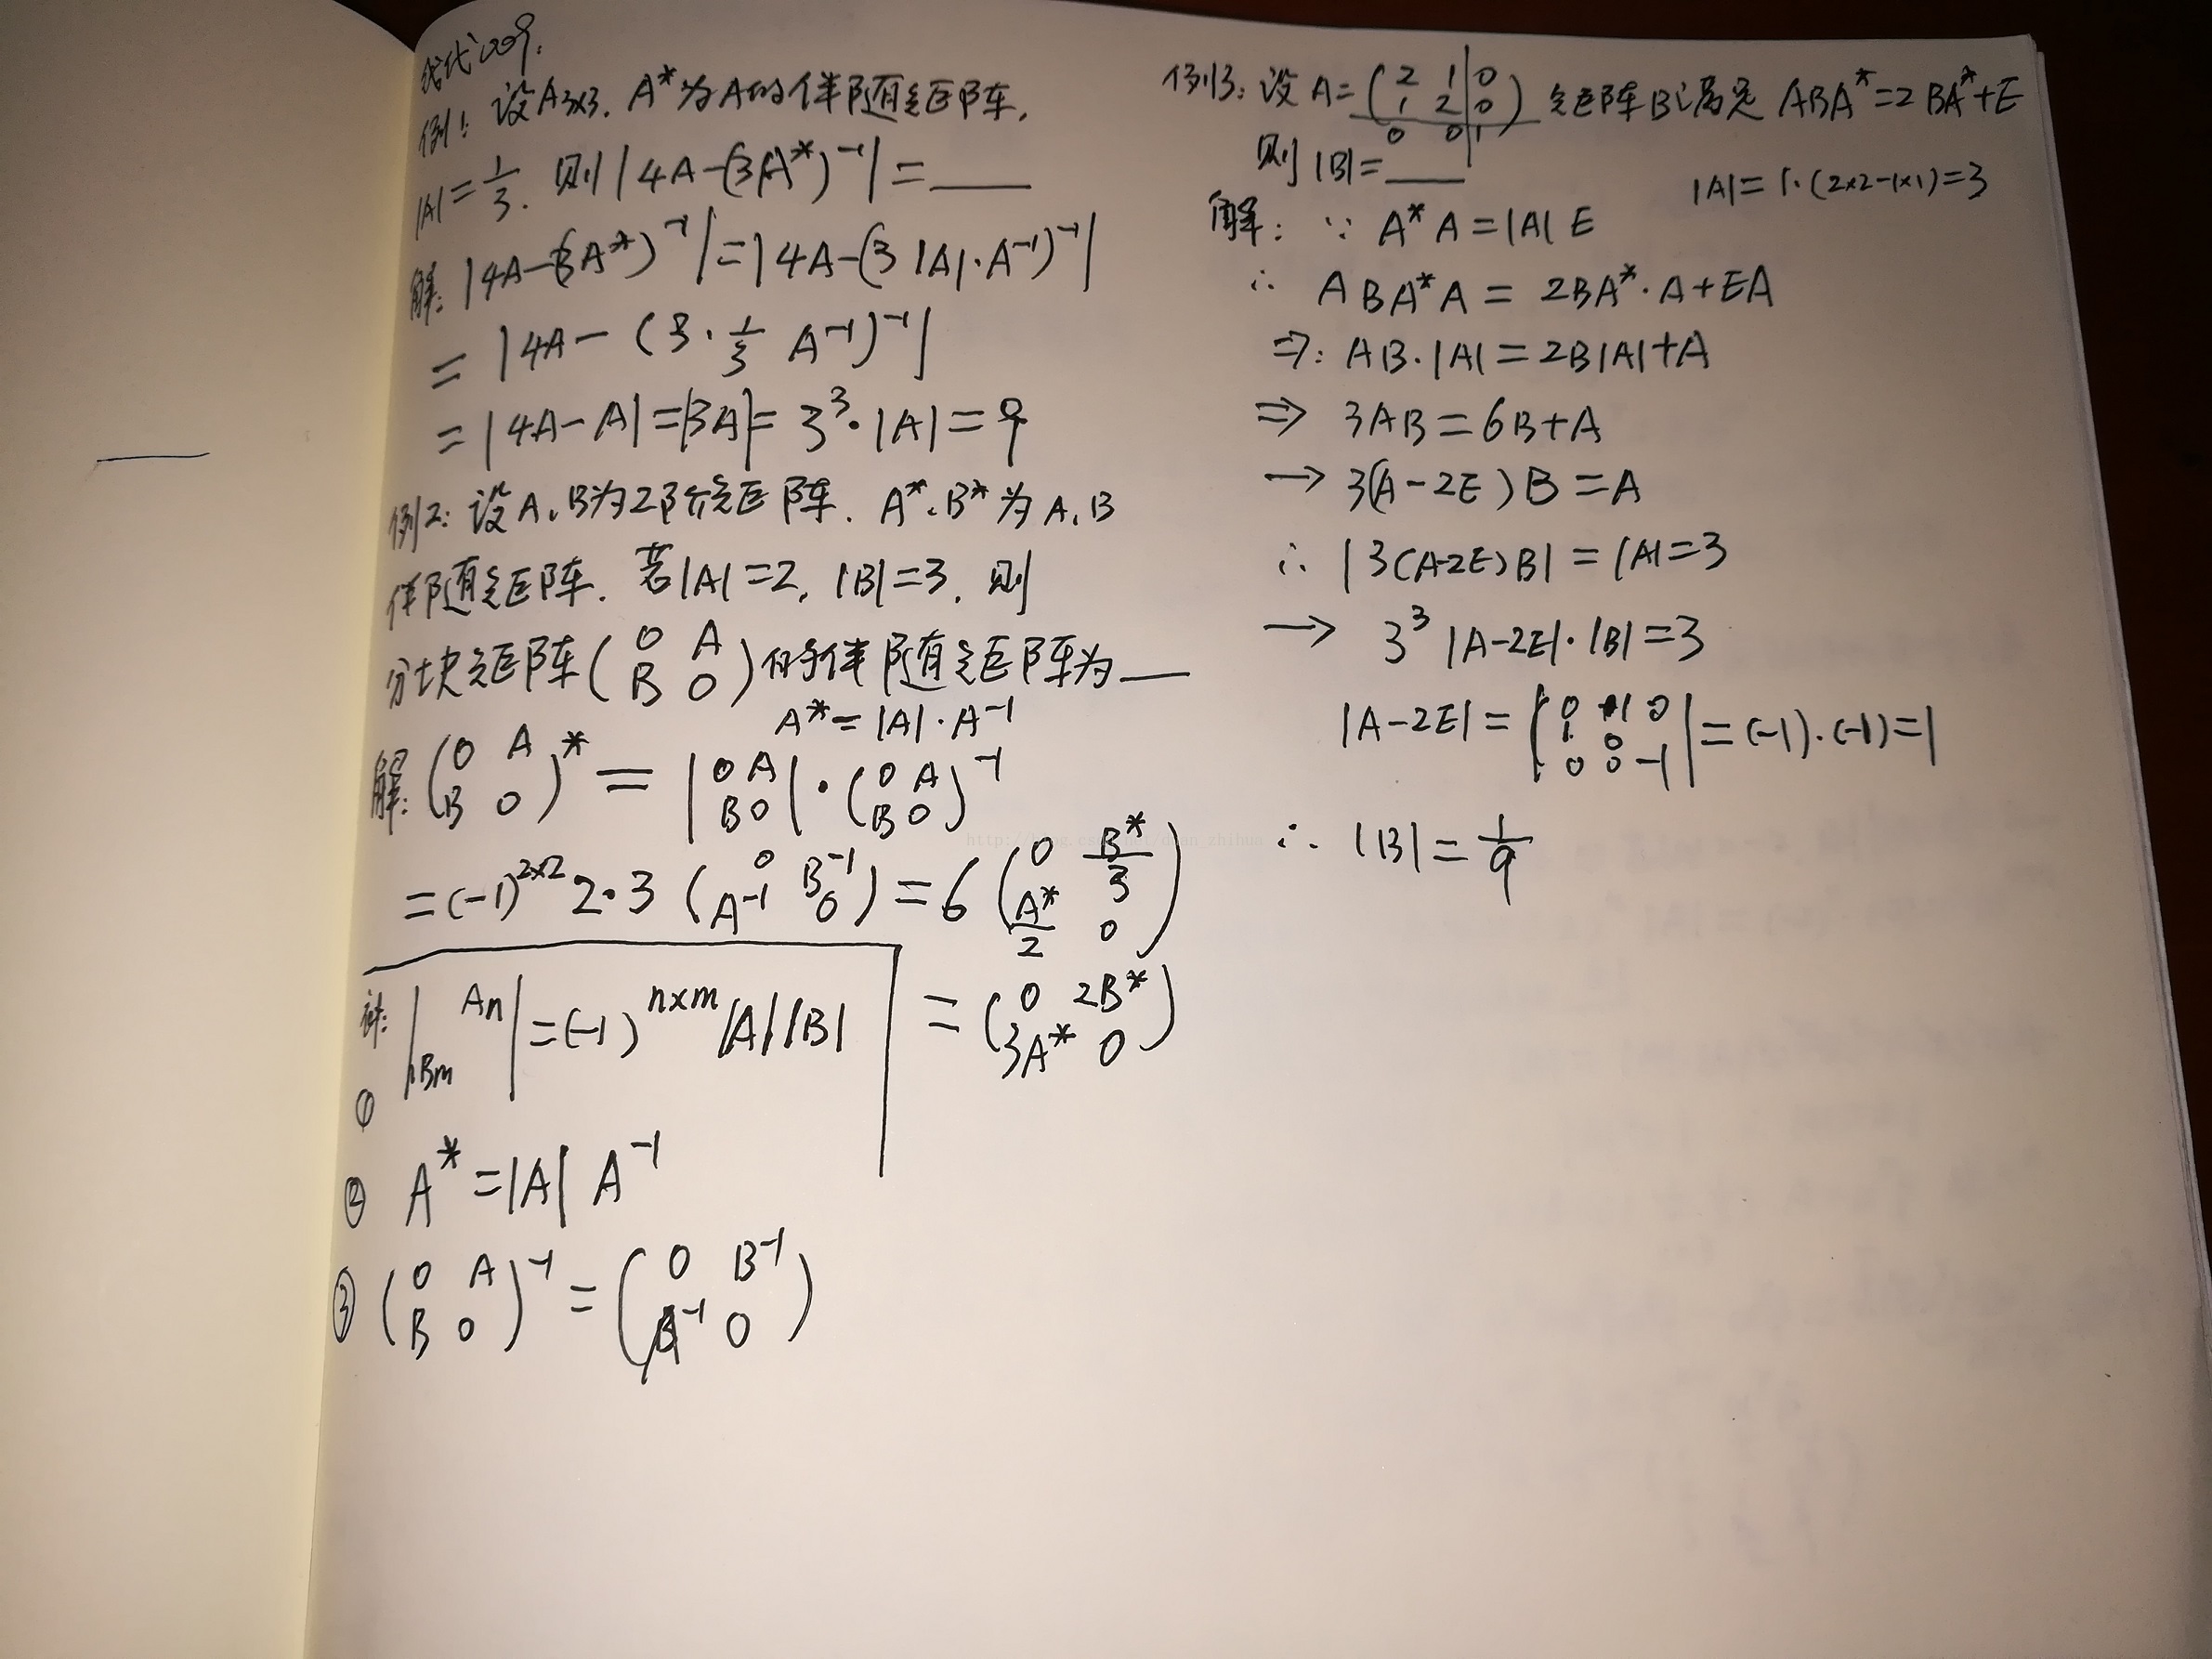 线代009.
例1: 设A3x3. A*为A的伴随矩阵.
|A|=1/3. 则|4A-(3A*)⁻¹|=____
解: |4A-(3A*)⁻¹|=|4A-(3|A|·A⁻¹)⁻¹|
=|4A-(3·1/3 A⁻¹)⁻¹|
=|4A-A|=|3A|=3³·|A|=9
例2: 设A、B为2阶矩阵. A*、B*为A、B
伴随矩阵. 若|A|=2, |B|=3. 则
分块矩阵(0 A
B 0)的伴随矩阵为___
A*=|A|·A⁻¹
解: (0 A
B 0)* = |0 A
B 0|·(0 A
B 0)⁻¹
=(-1)^2×2 2·3 (0 B⁻¹
A⁻¹ 0)=6(0 B*/3
A*/2 0)
=(0 2B*
3A* 0)
注:
① |An
Bm|=(-1)^n×m |A||B|
② A*=|A| A⁻¹
③ (0 A
B 0)⁻¹=(0 B⁻¹
A⁻¹ 0)
例3: 设A=(2 1 0
1 2 0
0 0 1) 矩阵B满足 ABA*=2BA*+E
则|B|=____
|A|=1·(2×2-1×1)=3
解: ∵ A*A=|A|E
∴ ABA*A=2BA*·A+EA
⇒: AB·|A|=2B|A|+A
⇒ 3AB=6B+A
→ 3(A-2E)B=A
∴ |3(A-2E)B|=|A|=3
→ 3³|A-2E|·|B|=3
|A-2E|=|0 1 0
1 0
0 0 -1|=(-1)·(-1)=1
∴ |B|=1/9